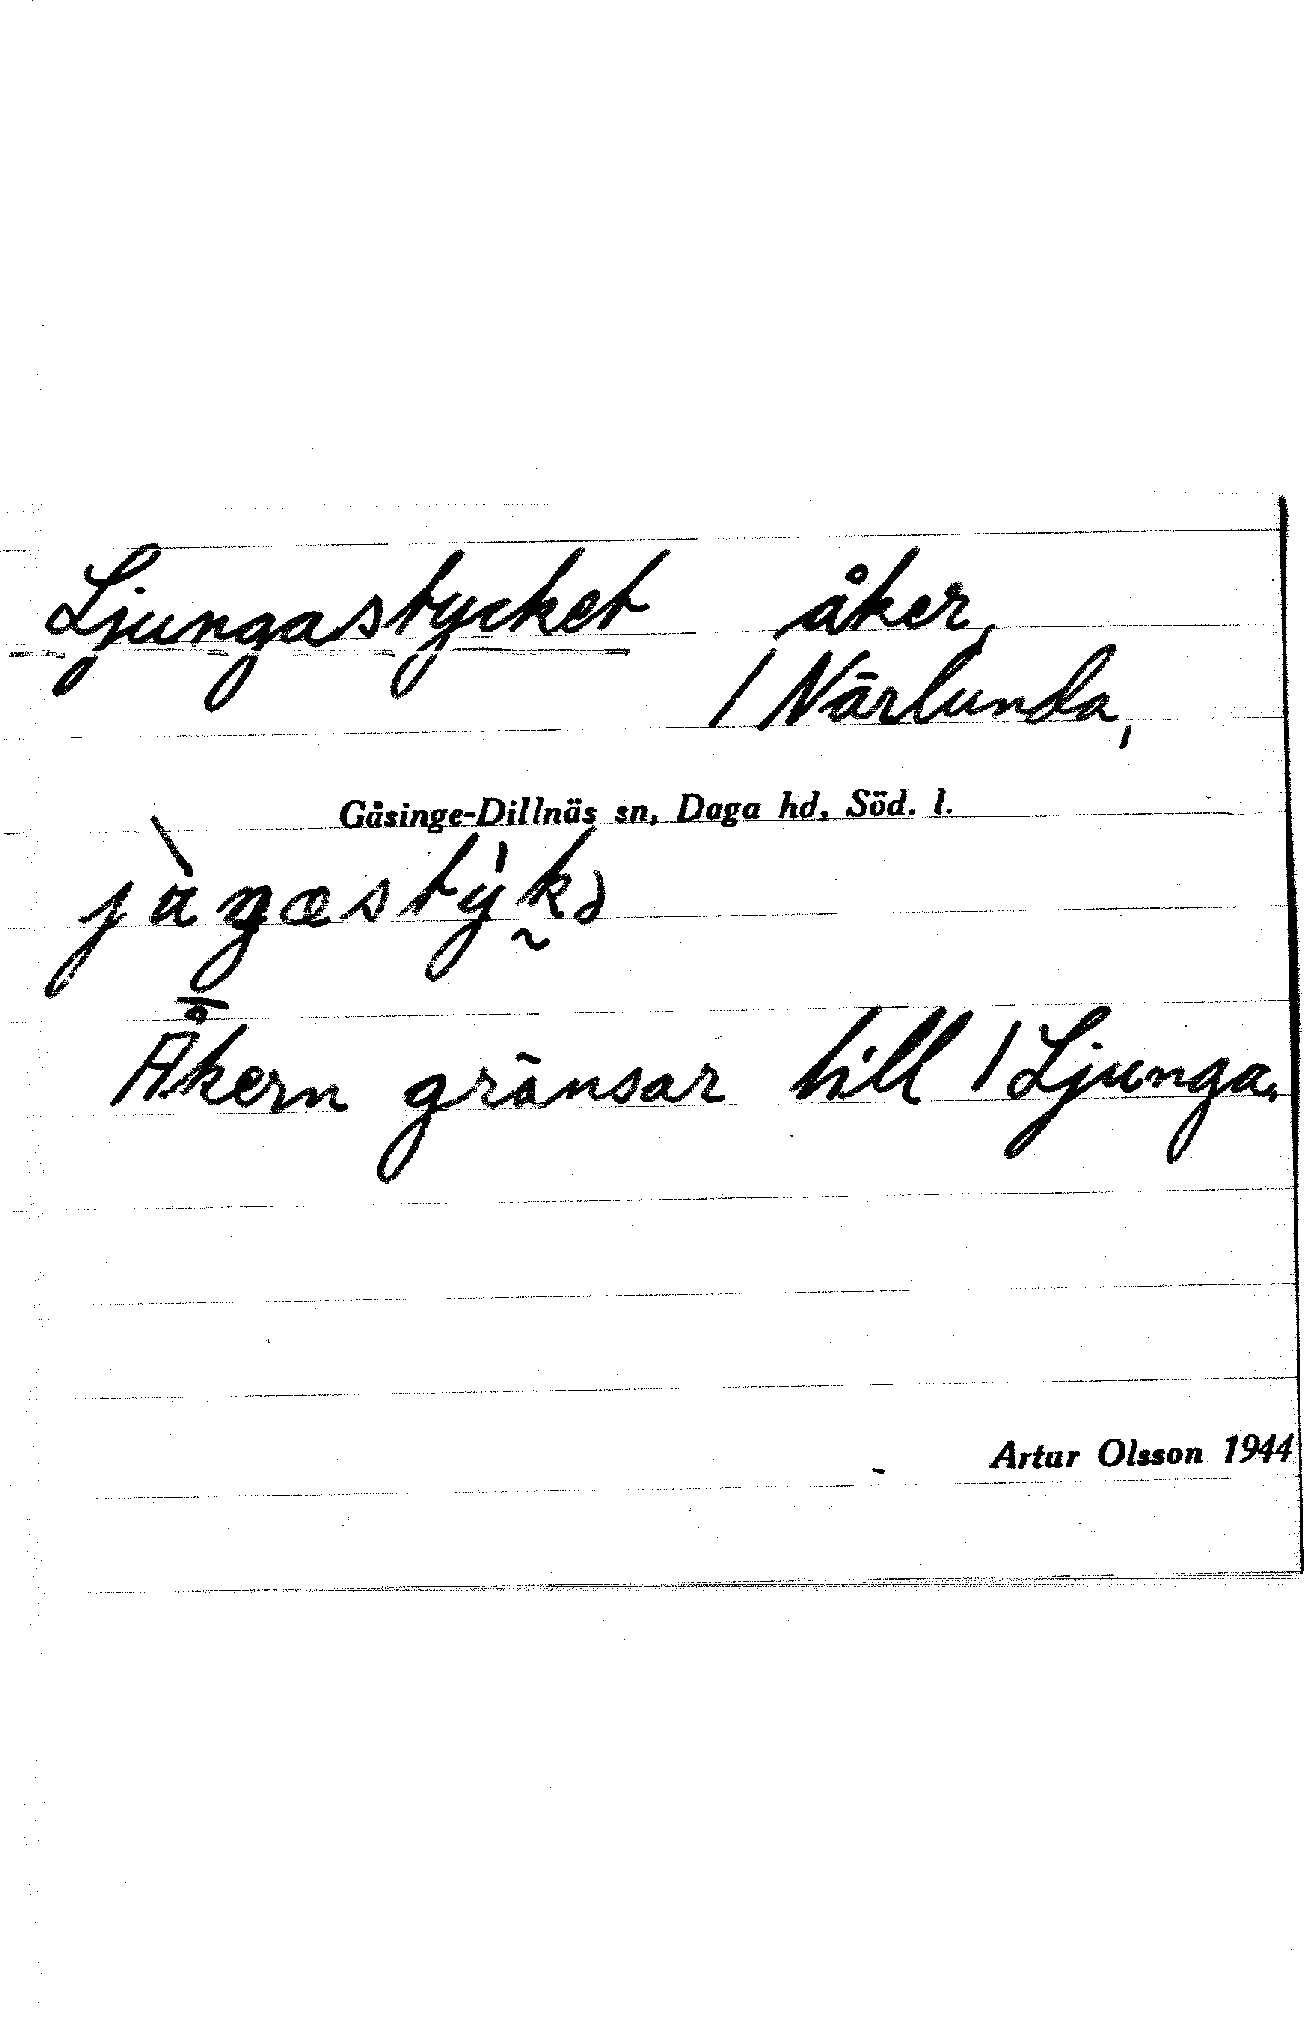 Ljungastycket åker,
/ Närlunda,
Gåsinge-Dillnäs sn, Daga hd, Söd. l.
Åkern gränsar till / Ljunga.
Artur Olsson 1944